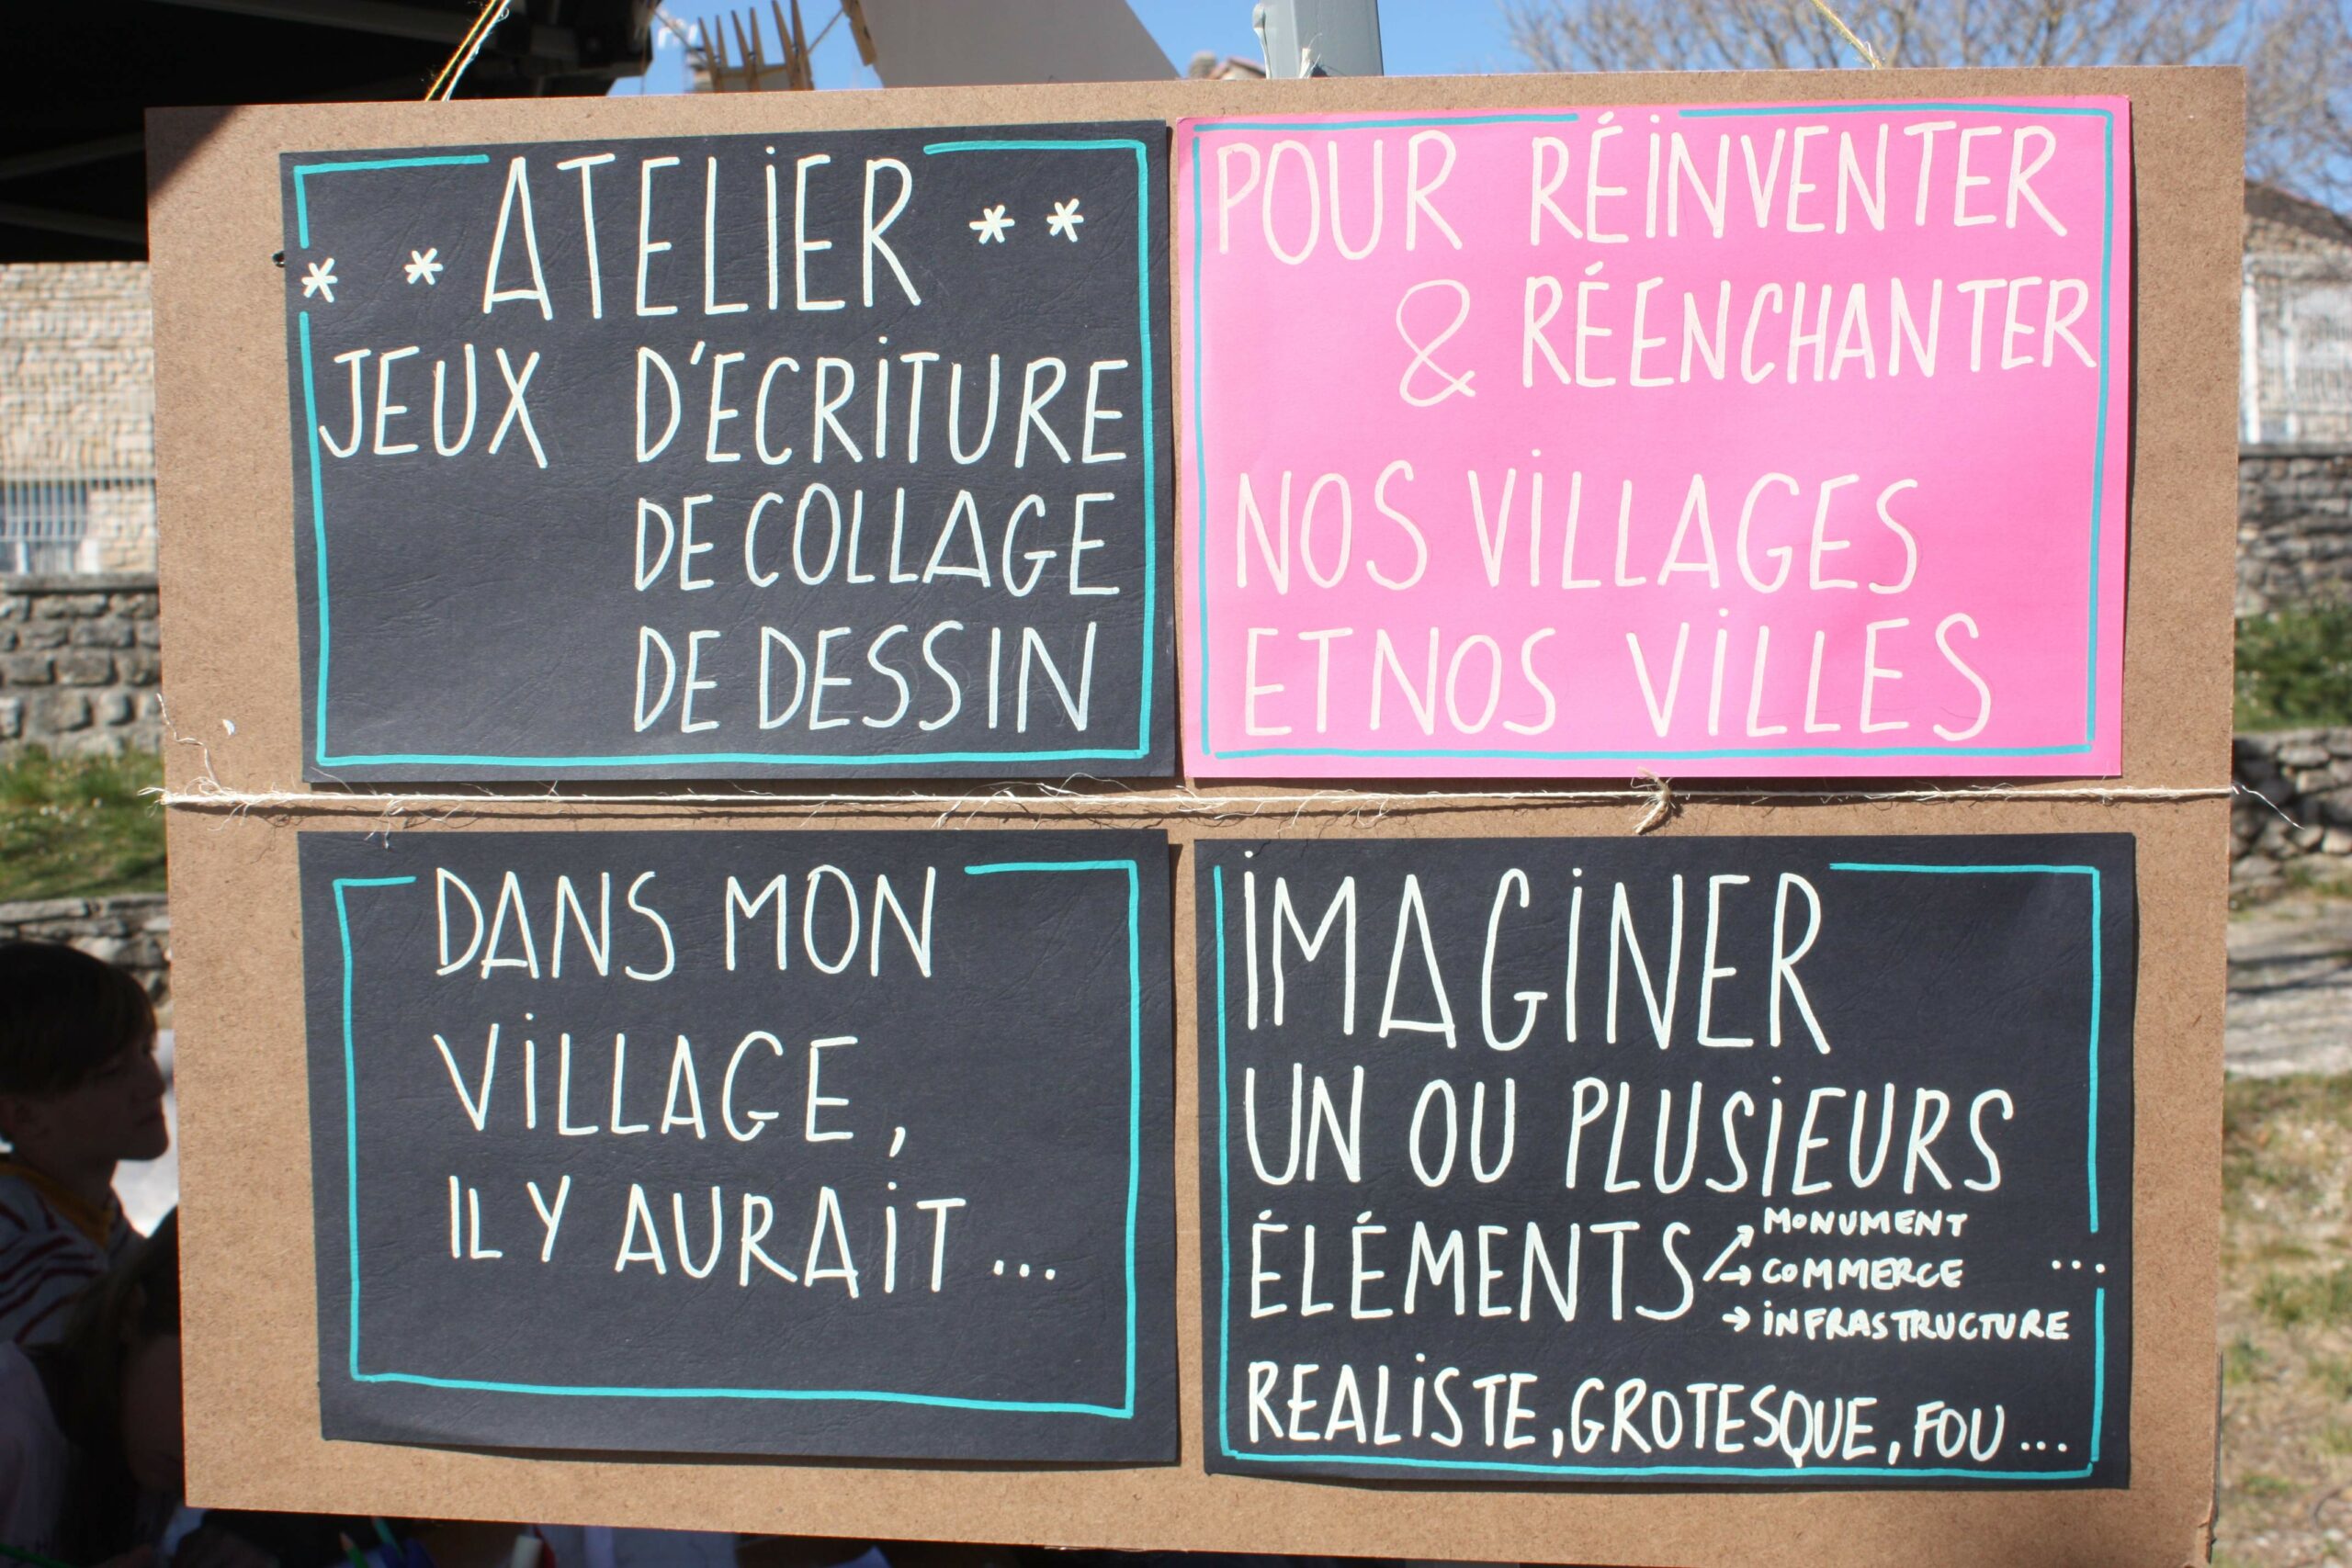 * * ATELIER * *
JEUX D'ECRITURE
DE COLLAGE
DE DESSIN
POUR RÉINVENTER
& RÉENCHANTER
NOS VILLAGES
ET NOS VILLES
DANS MON
VILLAGE,
IL Y AURAIT...
IMAGINER
UN OU PLUSIEURS
ÉLÉMENTS
→ MONUMENT
→ COMMERCE ...
→ INFRASTRUCTURE
REALISTE, GROTESQUE, FOU...